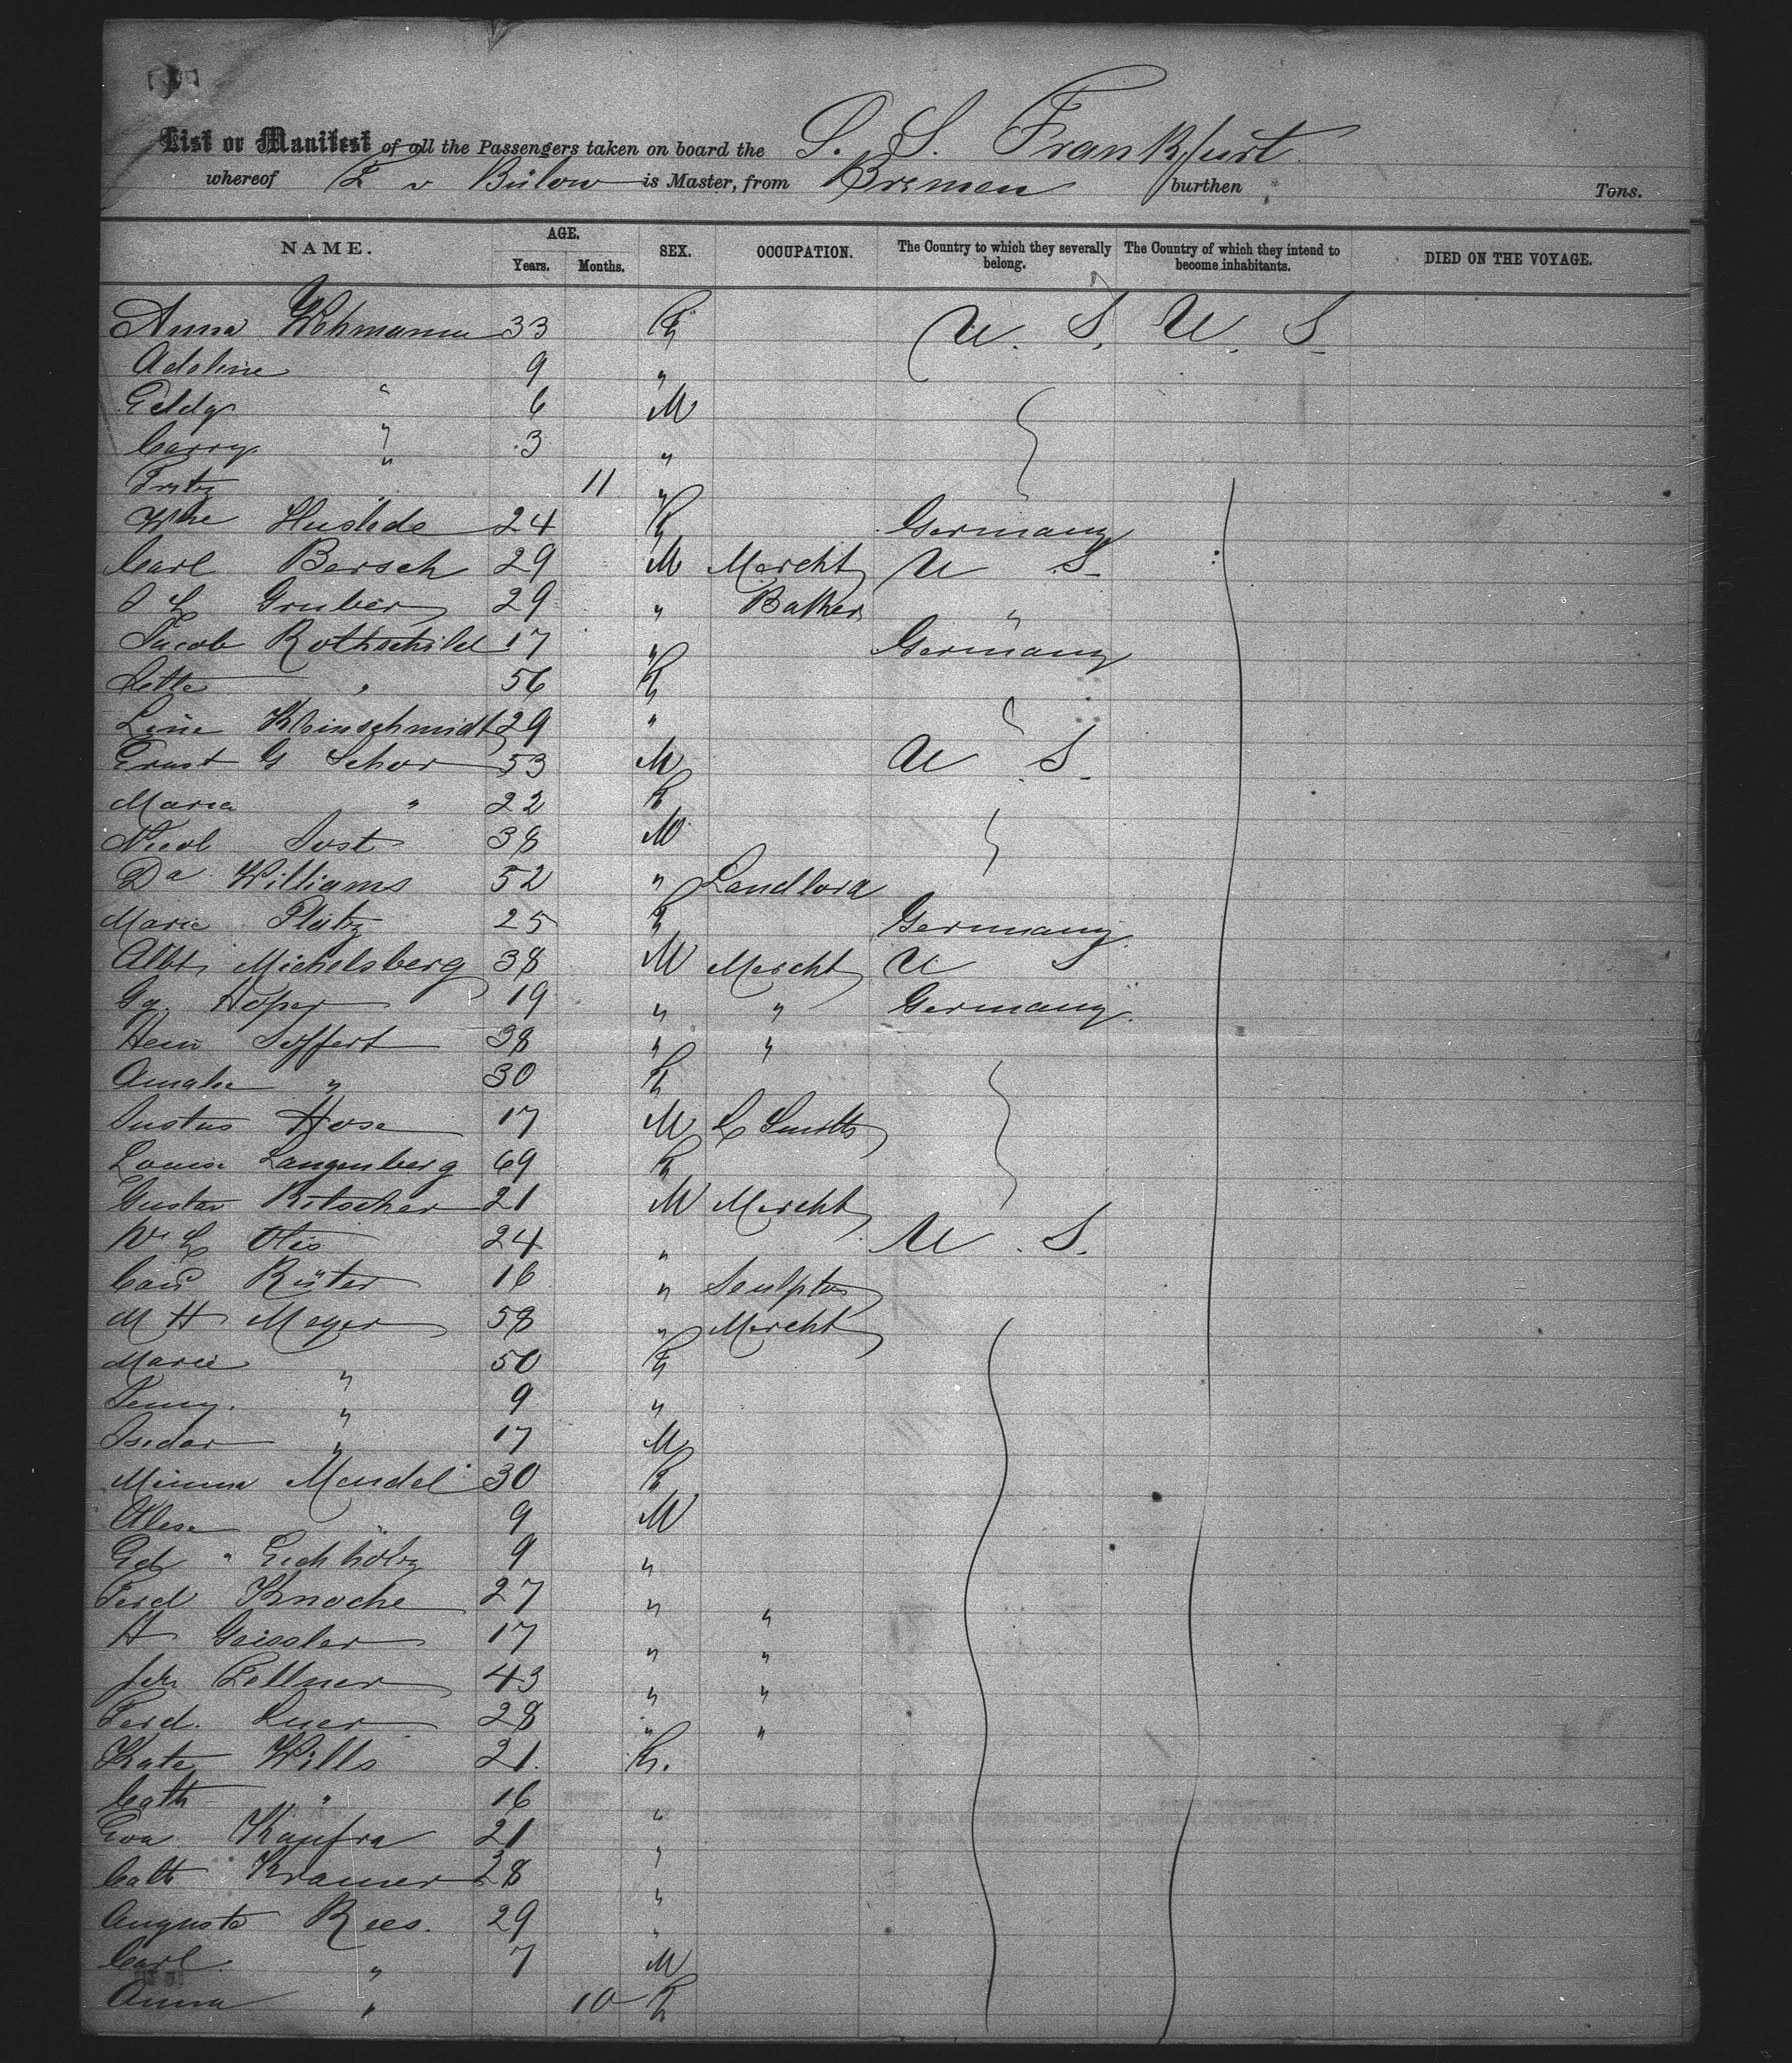 List or Manifest of all the Passengers taken on board the S. S. Frankfurt
whereof F v Bülow is Master, from Bremen burthen Tons.
NAME. AGE. Years. Months. SEX. OCCUPATION. The Country to which they severally belong. The Country of which they intend to become inhabitants. DIED ON THE VOYAGE.
Anna Wehmann 33 F U. S. U. S
Adeline 9 "
Eddy " 6 M
Carry " 3 "
Fritz " 11 "
Whe Hustede 24 F Germany
Carl Bersch 29 M Mercht U S
Gruber 29 " Baker "
Jacob Rothschild 17 " Germany
Jette " 56 F
Line Kleinschmidt 29 "
Ernst G Schor 53 M U S.
Maria " 22 F
Nicol Jost 38 M
Da Williams 52 " Landlord
Marie Platz 25 F Germany
Albt Michelsberg 38 M Mercht U S
Gg. Hoper 19 " " Germany
Hein Seffert 38 " "
Amalie " 30 F
Justus Hose 17 M L Smith
Louise Langenberg 69 F
Gustav Kitscher 21 M Mercht
W L Otis 24 " U. S.
Rüter 16 " Sculptor
M H Meyer 58 " Mercht
Marie " 50 F
Jenny. " 9 "
Isidor " 17 M
Minna Mendel 30 F
" 9 M
Ed " Eichholz 9 "
Ferd Knoche 27 " "
H Geissler 17 " "
Joh Zellner 43 " "
Ferd. Luer 28 " "
Kate Wills 21. F.
Cath " 16 "
Eva Kaufra 21 "
Cath Kramer 28 "
Auguste Rees. 29 "
Carl. " 7 M
Anna " 10 F